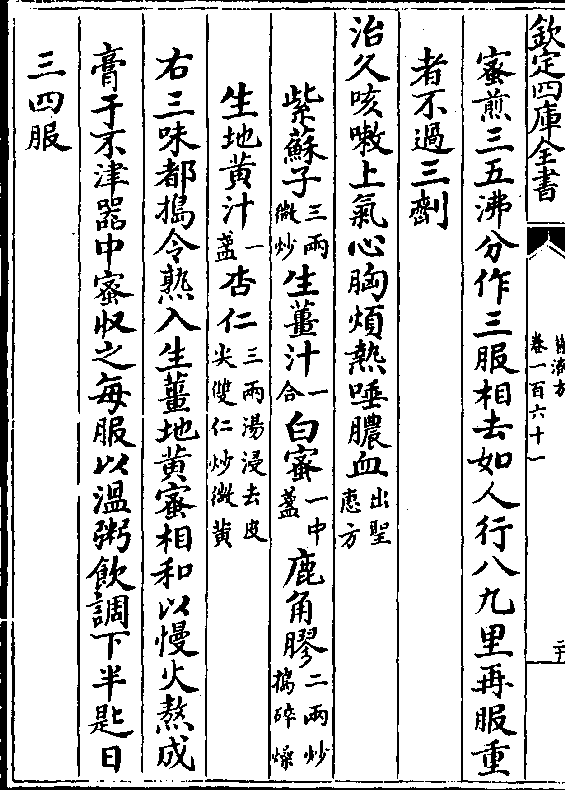 欽定四庫全書
普濟方
卷一百六十一
蜜煎三五沸分作三服相去如人行八九里再服重
者不過三劑
治久咳嗽上氣心胸煩熱唾膿血出聖惠方
紫蘇子三兩微炒生薑汁一合白蜜一中盞鹿角膠二兩炒搗碎燥
生地黄汁一盞杏仁三兩湯浸去皮尖雙仁炒微黄
右三味都搗令熟入生薑地黄蜜相和以慢火熬成
膏于不津器中蜜收之每服以溫粥飲調下半匙日
三四服